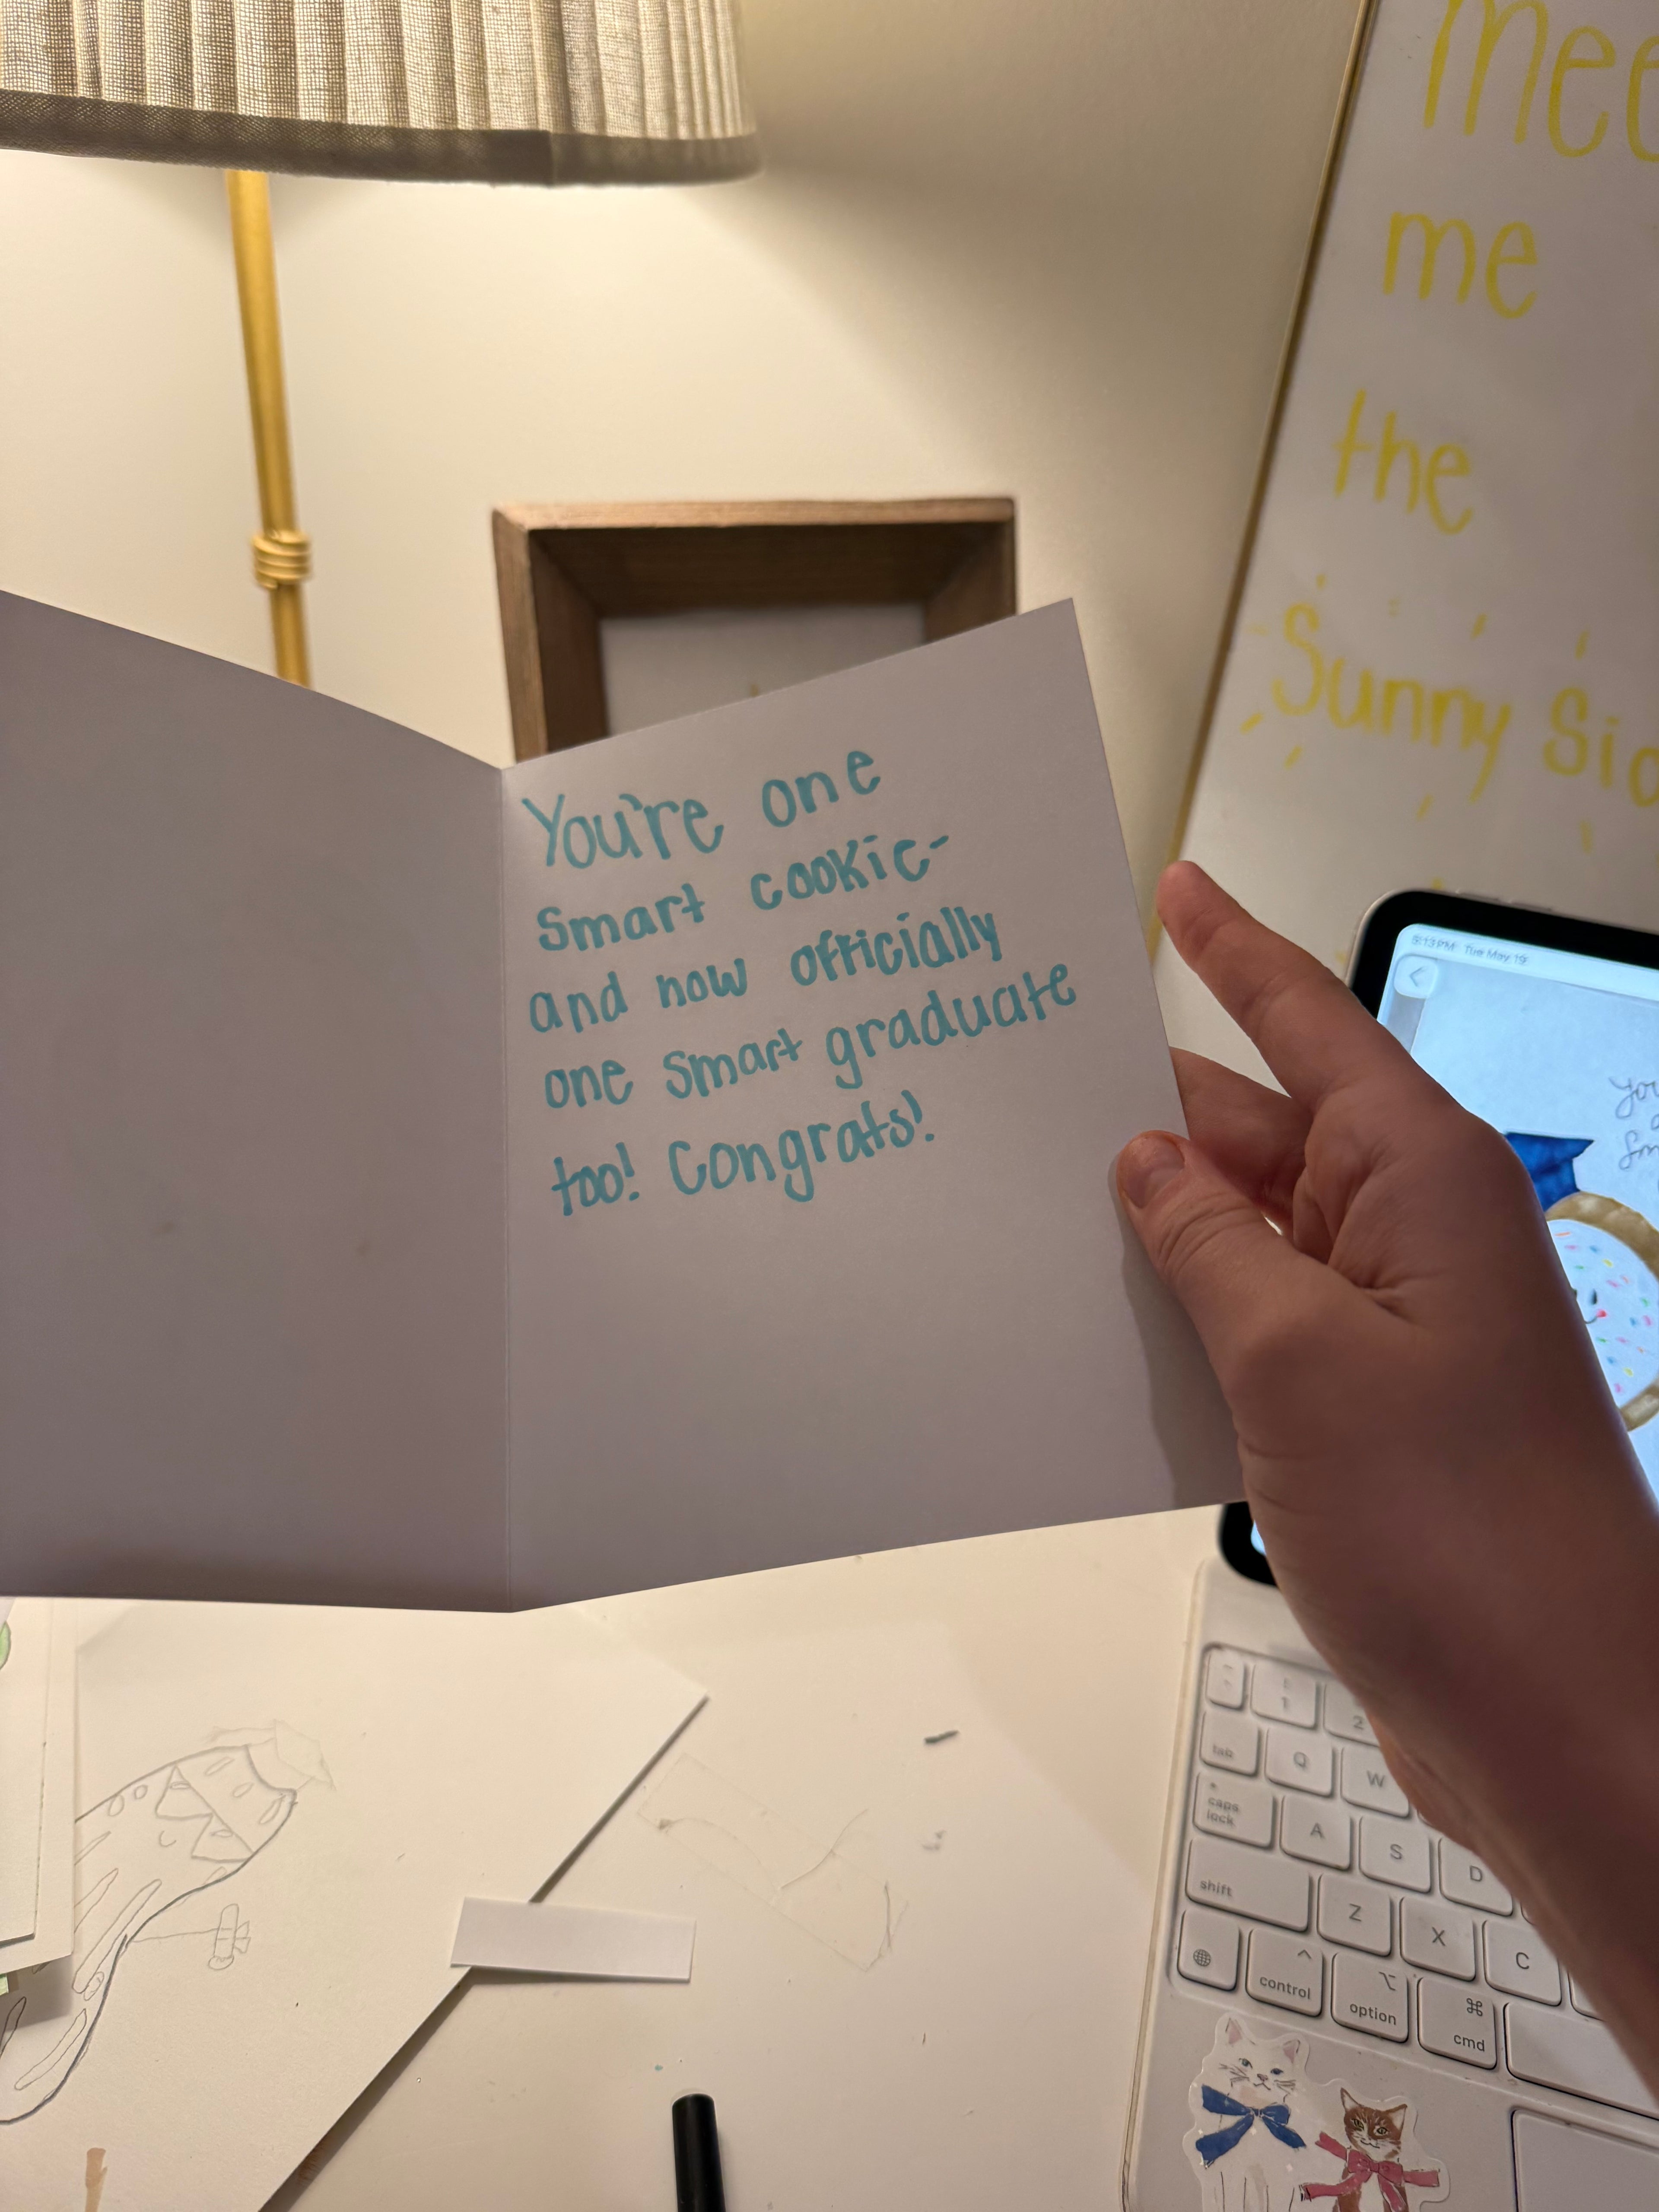 mee
me
the
Sunny Sid
You're one
smart cookie-
and now officially
one smart graduate
too! Congrats!
5:13 PM Tue May 19
You
a
Sm
1
2
tab
Q
W
caps
lock
A
S
D
shift
Z
X
C
control
option
cmd